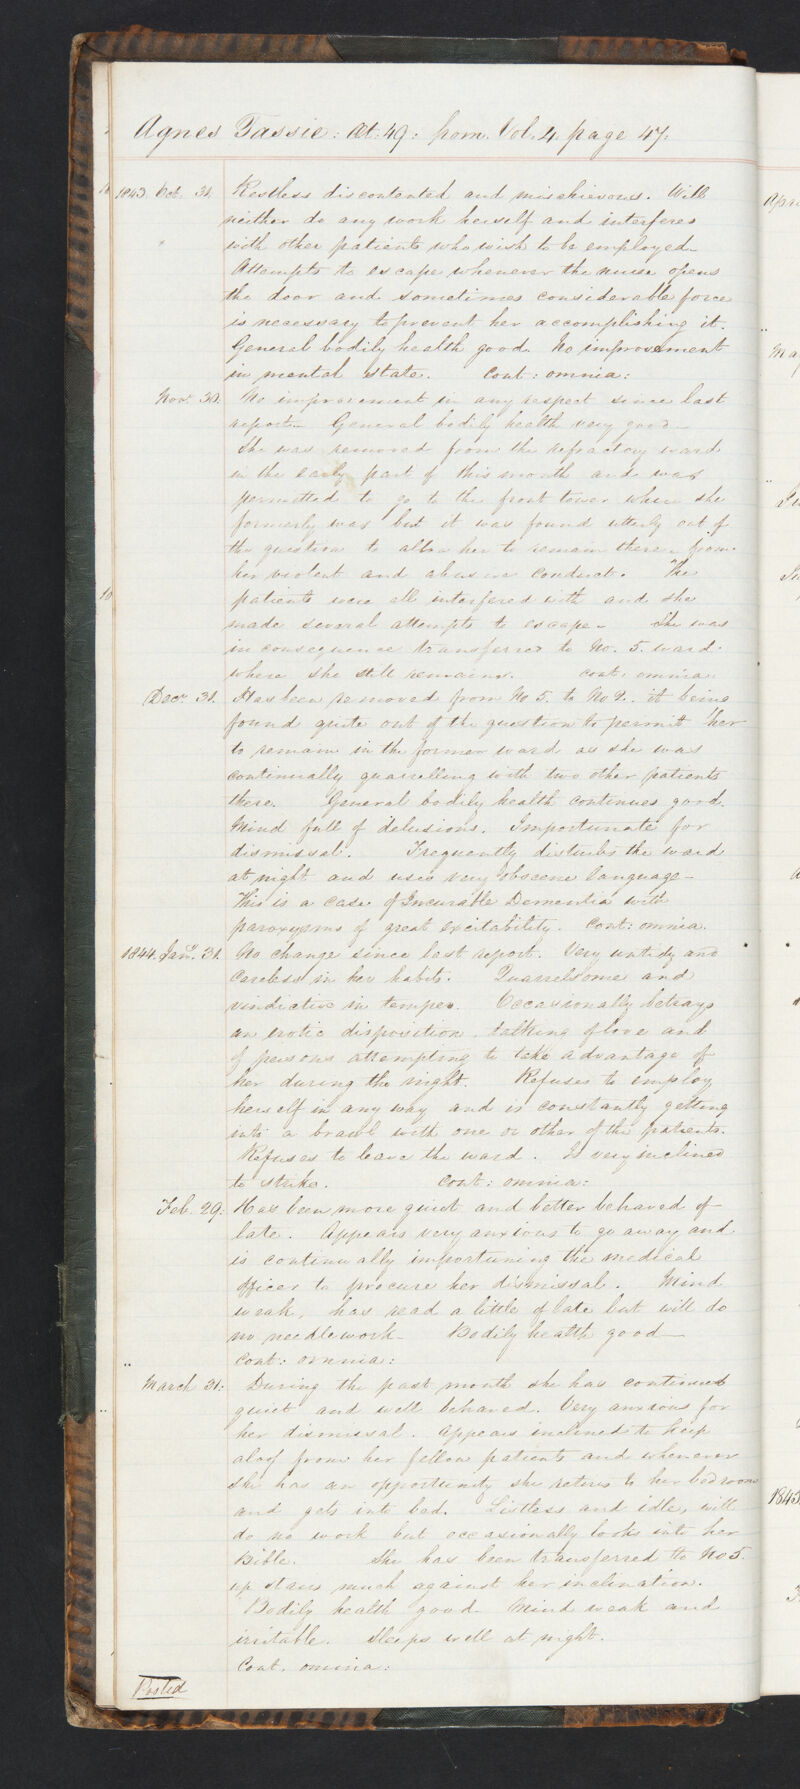 Agnes Tassie: Æt: 49: from Vol. 4. page 47.
1843 Oct. 31. Restless discontented and mischievous. Will
neither do any work herself and interferes
with other patients who wish to be employed.
Attempts to escape whenever the nurse opens
the door and sometimes considerable force
is necessary to prevent her accomplishing it.
General bodily health good. No improvement
in mental state. Cont: omnia:
Novr. 30. No improvement in any respect since last
report. General bodily health very good.
She was removed from the refractory ward
in the early part of this month and was
permitted to go to the front tower where she
formerly was but it was found utterly out of
the question to allow her to remain there from
her violent and abusive conduct. The
patients were all interfered with and she
made several attempts to escape. She was
in consequence transferred to No. 5. ward
where she still remains. Cont: omnia
Decr. 31. Has been removed from No 5. to No 2. it being
found quite out of the question to permit her
to remain in the former ward as she was
continually quarrelling with two other patients
there. General bodily health continues good.
Mind full of delusions. Importunate for
dismissal. Frequently disturbs the ward
at night and uses very obscene language.
This is a case of Incurable Dementia with
paroxysms of great excitability. Cont: omnia.
1844. Jany. 31. No change since last report. Very untidy and
careless in her habits. Quarrelsome and
vindictive in temper. Occasionally betrays
an erotic disposition talking of love and
of persons attempting to take advantage of
her during the night. Refuses to employ
herself in any way and is constantly getting
into a brawl with one or other of the patients.
Refuses to leave the ward. Is very inclined
to strike. Cont: omnia:
Feb. 29: Has been more quiet and better behaved of
late. Appears very anxious to go away and
is continually importuning the medical
officer to procure her dismissal. Mind
weak, has read a little of late but will do
no needlework. Bodily health good
Cont: omnia:
March 31: During the past month she has continued
quiet and well behaved. Very anxious for
her dismissal. Appears inclined to keep
aloof from her fellow patients and whenever
she has an opportunity she retires to her bedroom
and gets into bed. Listless and idle, will
do no work but occasionally looks into her
Bible. She has been transferred to No 5.
up stairs much against her inclination.
Bodily health good. Mind weak and
irritable. Sleeps well at night.
Cont. omnia:
Posted
1845